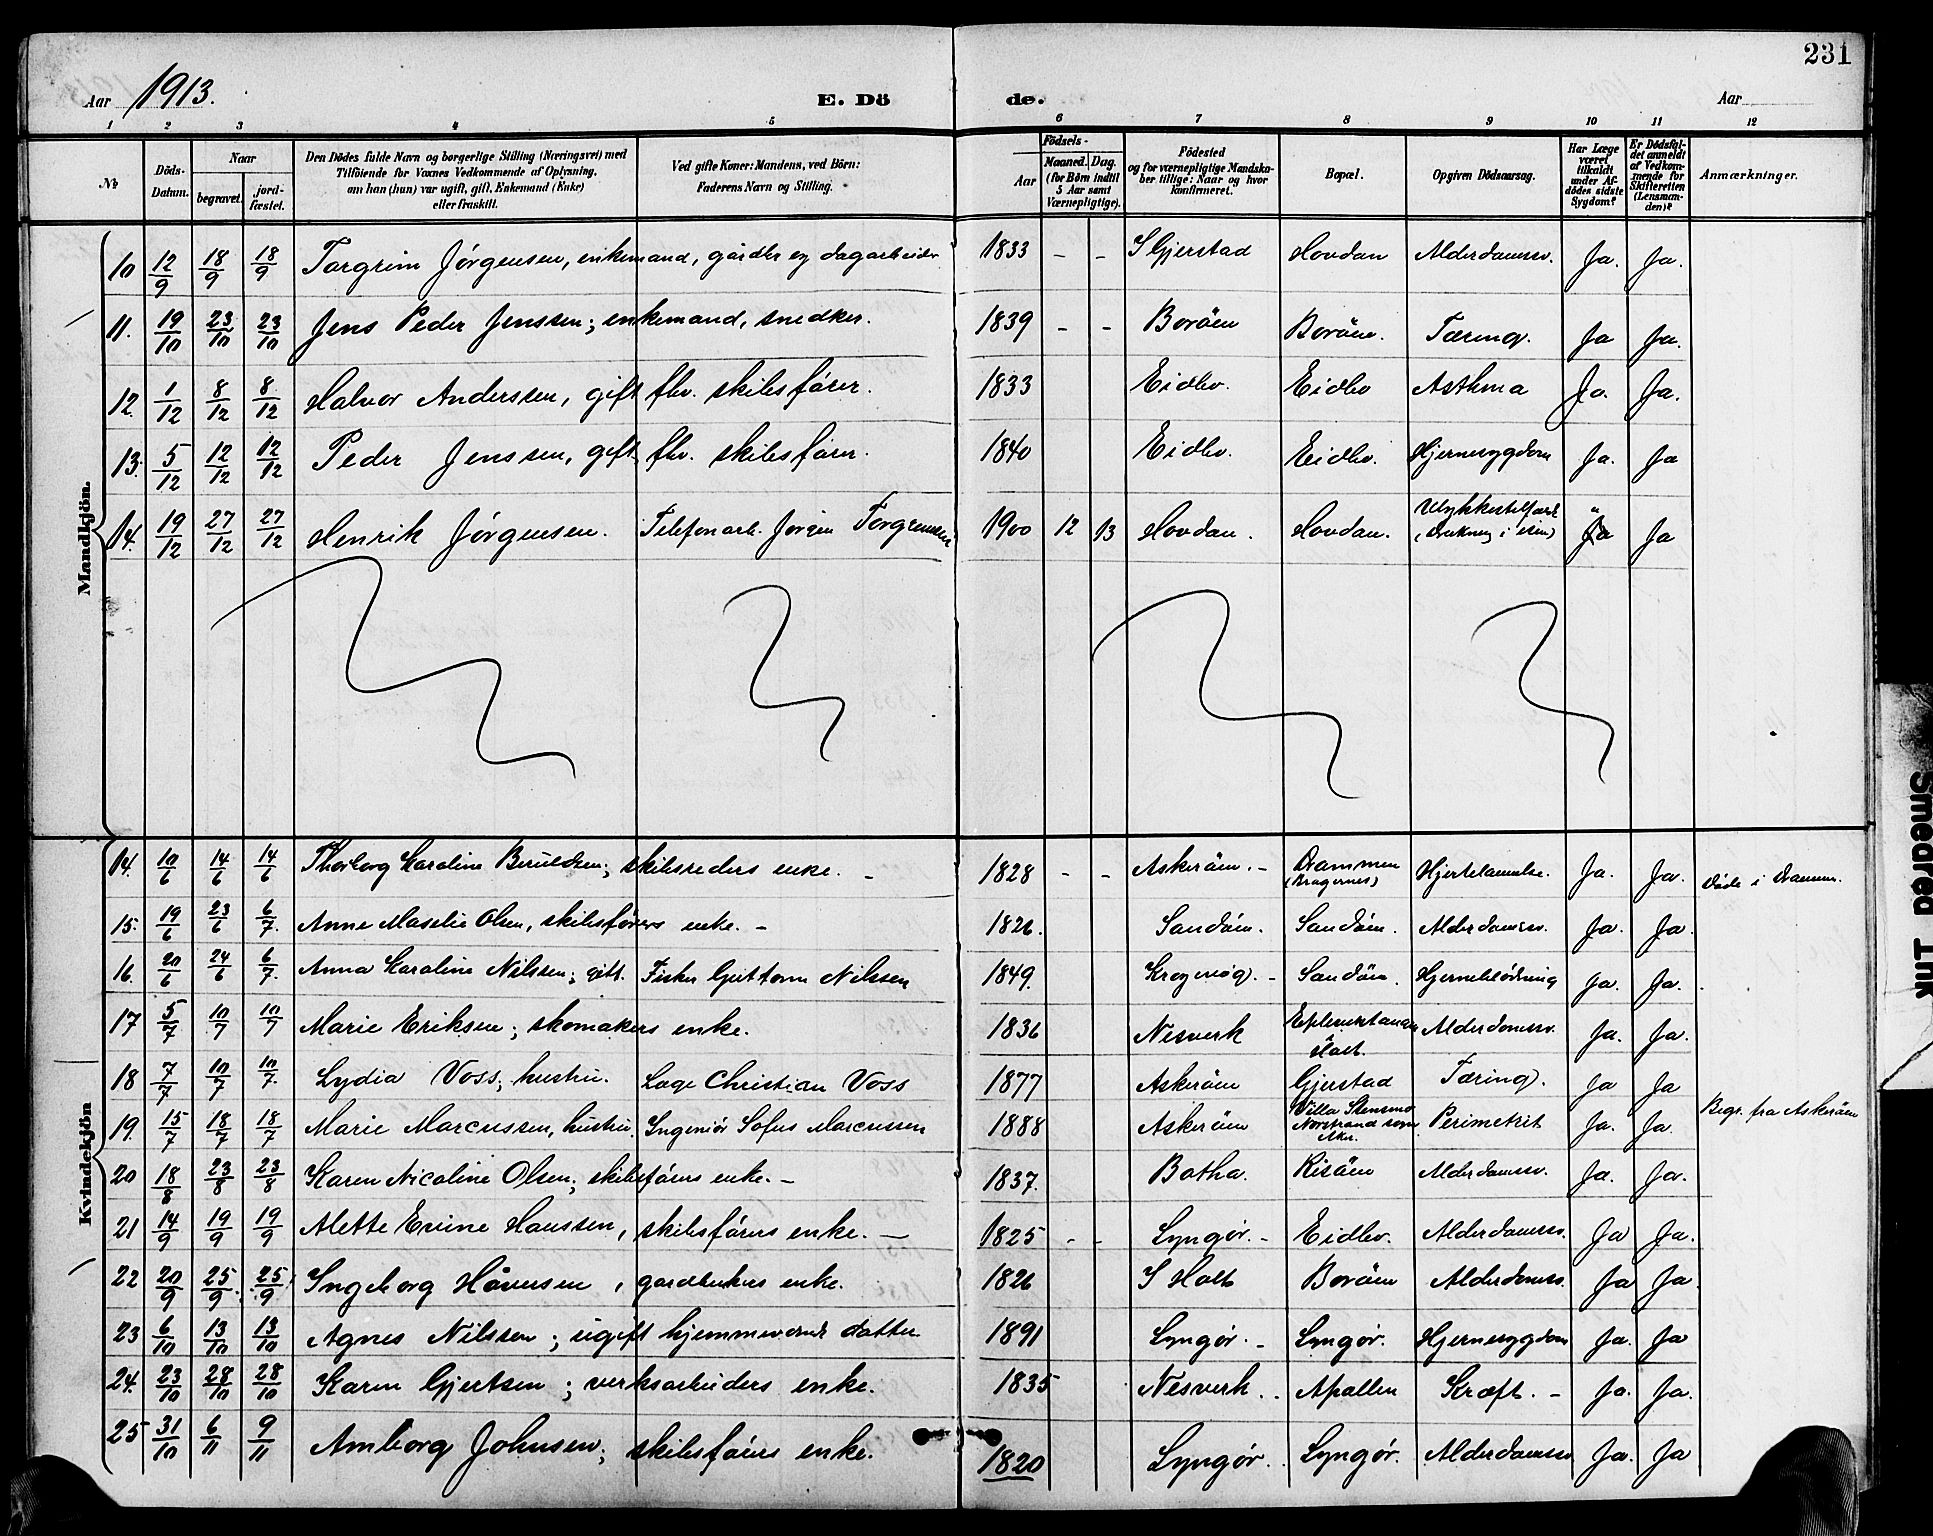 231
Aar 1913.
E. Dö de.
Aar
1 2 3 4 5 6 7 8 9 10 11 12
No
Döds-Datum.
Naar
begravet.
jord-fæstet.
Den Dödes fulde Navn og borgerlige Stilling (Næringsvei) med
Tilföiende for Voxnes Vedkommende af Oplysning,
om han (hun) var ugift, gift, Enkemand (Enke)
eller fraskilt.
Ved gifte Koner: Mandens, ved Börn:
Faderens Navn og Stilling.
Födsels-
Aar
Maaned. Dag.
(for Börn indtil
5 Aar samt
Værnepligtige).
Födested
og for værnepligtige Mandska-
ber tillige: Naar og hvor
konfirmeret.
Bopæl.
Opgiven Dödsaarsag.
Har Læge
været
tilkaldt
under Af-
dödes sidste
Sygdom?
Er Dödsfal-
det anmeldt
af Vedkom-
mende for
Skifteretten
(Lensman-
den)?
Anmærkninger.
Mandkjön.
10 12/9 18/9 18/9 Torgrim Jörgensen, enkemand, gårdbr og dagarbeider 1833 - - I Gjerstad Hovdan Alderdomssv. Ja. Ja.
11. 19/10 23/10 23/10 Jens Peder Jenssen; enkemand, snedker. 1839 - - Boröen Boröen. Tæring. Ja Ja.
12. 1/12 8/12 8/12 Halvor Anderssen, gift flv. skibsförer. 1833 Eidbo. Eidbo Asthma Ja. Ja.
13. 5/12 12/12 12/12 Peder Jenssen, gift, fhv. skibsförer. 1840 Eidbo. Eidbo. Hjernesygdom Ja. Ja
14. 19/12 27/12 27/12 Henrik Jörgensen. Telefonarb. Jörgen Torgrimsen 1900 12 13 Hovdan. Hovdan. Ulykkestilfælde (Drukning i isen) Ja Ja
Kvindekjön
14. 10/6 14/6 14/6 Thorborg Karoline Berntsen; skibsreders enke. - 1828 - - Askeröen. - Drammen (Bragernes) Hjertelammelse. Ja. Ja. Döde i Drammen.
15. 19/6 23/6 6/7. Anne Maselie Olsen, skibsförers enke. - 1826. Sandöen. Sandöen. Alderdomssv. Ja. Ja.
16. 20/6 24/6 6/7. Anna Karoline Nilssen; gift. Fisker Guttorm Nilssen 1849. - Sandöen. Hjerneblödning Ja. Ja.
17 5/7 10/7 10/7 Marie Eriksen; skomakers enke. 1836 Nesverk i Holt. Alderdomssv. Ja. Ja.
18 7/7 10/7 10/7. Lydia Voss; hustru. Læge Christian Voss 1877 Askeröen Gjerstad Tæring. Ja Ja
19. 15/7 18/7 18/7 Marie Marcussen, hustru. Ingeniör Sofus Marcussen 1888 Askeröen Villa Stensmo Norstrand sogn Aker. Perimetrit Ja. Ja. Begr. fra Askeröen
20 18/8 23/8 23/8 Karen Nicoline Olsen; skibsförers enke. - 1837. Botha. Risöen Alderdomssv. Ja. Ja.
21 14/9 19/9 19/9 Alette Evine Hanssen, skibsförers enke. - 1825 - - Lyngör. - Eidbo. Alderdomssv. Ja Ja.
22 20/9 25/9. 25/9 Ingeborg Håversen, gardbrukers enke. 1826 I Holt Boröen Alderdomssv. Ja Ja.
23 6/10 13/10 13/10 Agnes Nilssen; ugift hjemmeværende datter. 1891 Lyngör. - Lyngör. Hjernesygdom Ja. Ja
24. 23/10 28/10 28/10 Karen Gjertsen; verksarbeiders enke. 1835 Nesverk. Apallen Kræft. - Ja. Ja.
25 31/10 6/11 9/11 Amborg Johnsen; skibsförers enke. 1820 Lyngör. Lyngör. Alderdomssv Ja. Ja
Smeared Ink